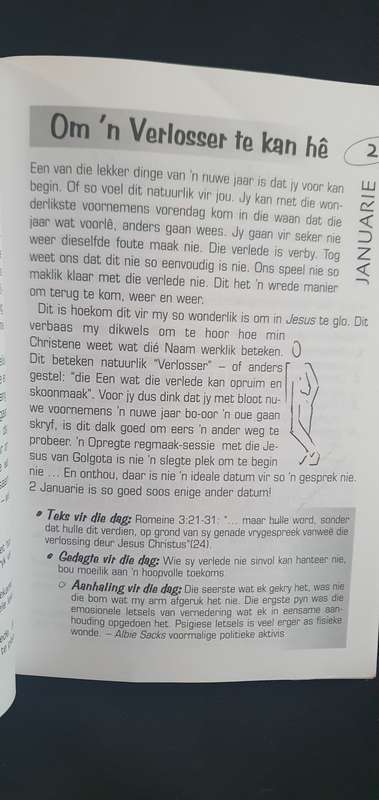 Om 'n Verlosser te kan hê
2
JANUARIE
Een van die lekker dinge van 'n nuwe jaar is dat jy voor kan
begin. Of so voel dit natuurlik vir jou. Jy kan met die won-
derlikste voornemens vorendag kom in die waan dat die
jaar wat voorlê, anders gaan wees. Jy gaan vir seker nie
weer dieselfde foute maak nie. Die verlede is verby. Tog
weet ons dat dit nie so eenvoudig is nie. Ons speel nie so
maklik klaar met die verlede nie. Dit het 'n wrede manier
om terug te kom, weer en weer.
Dit is hoekom dit vir my so wonderlik is om in Jesus te glo. Dit
verbaas my dikwels om te hoor hoe min
Christene weet wat dié Naam werklik beteken.
Dit beteken natuurlik "Verlosser" – of anders
gestel: "die Een wat die verlede kan opruim en
skoonmaak". Voor jy dus dink dat jy met bloot nu-
we voornemens 'n nuwe jaar bo-oor 'n oue gaan
skryf, is dit dalk goed om eers 'n ander weg te
probeer. 'n Opregte regmaak-sessie met die Je-
sus van Golgota is nie 'n slegte plek om te begin
nie ... En onthou, daar is nie 'n ideale datum vir so 'n gesprek nie.
2 Januarie is so goed soos enige ander datum!
Teks vir die dag: Romeine 3:21-31: "... maar hulle word, sonder
dat hulle dit verdien, op grond van sy genade vrygespreek vanweë die
verlossing deur Jesus Christus"(24).
Gedagte vir die dag: Wie sy verlede nie sinvol kan hanteer nie,
bou moeilik aan 'n hoopvolle toekoms.
Aanhaling vir die dag: Die seerste wat ek gekry het, was nie
die bom wat my arm afgeruk het nie. Die ergste pyn was die
emosionele letsels van vernedering wat ek in eensame aan-
houding opgedoen het. Psigiese letsels is veel erger as fisieke
wonde. – Albie Sacks voormalige politieke aktivis